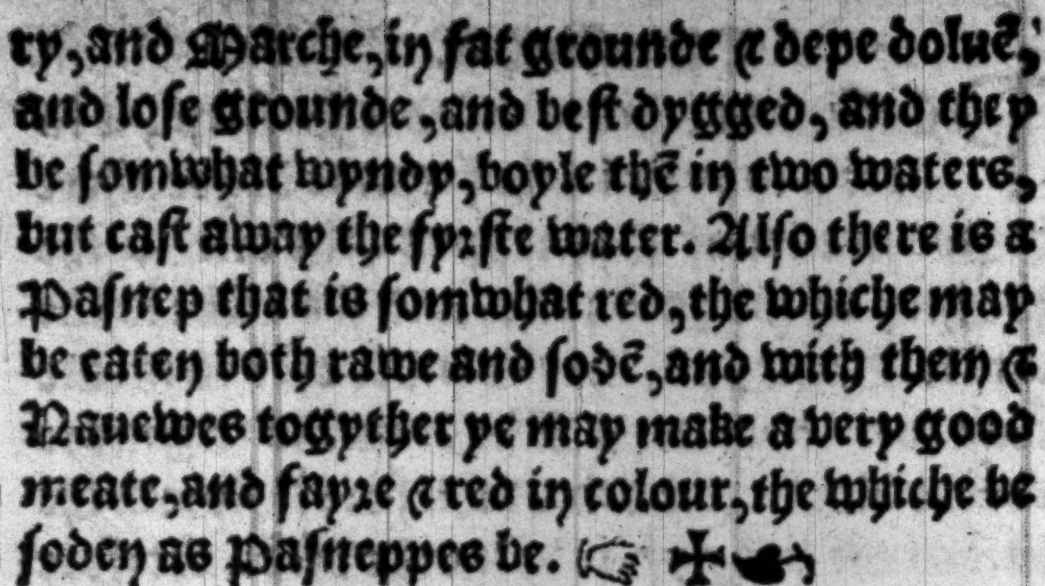 ry, and Marche, in fat grounde ⁊ depe doluē,
and lose grounde, and beſt dygged, and they
be ſomwhat wyndy, boyle thē in two waters,
but caſt away the fyꝛſte water. Alſo there is a
Paſnep that is ſomwhat red, the whiche may
be eaten both rawe and ſodē, and with them ⁊
Nauewes togyther ye may make a very good
meate, and fayꝛe ⁊ red in colour, the whiche be
ſoden as Paſneppes be. ☞ ✠ ❧